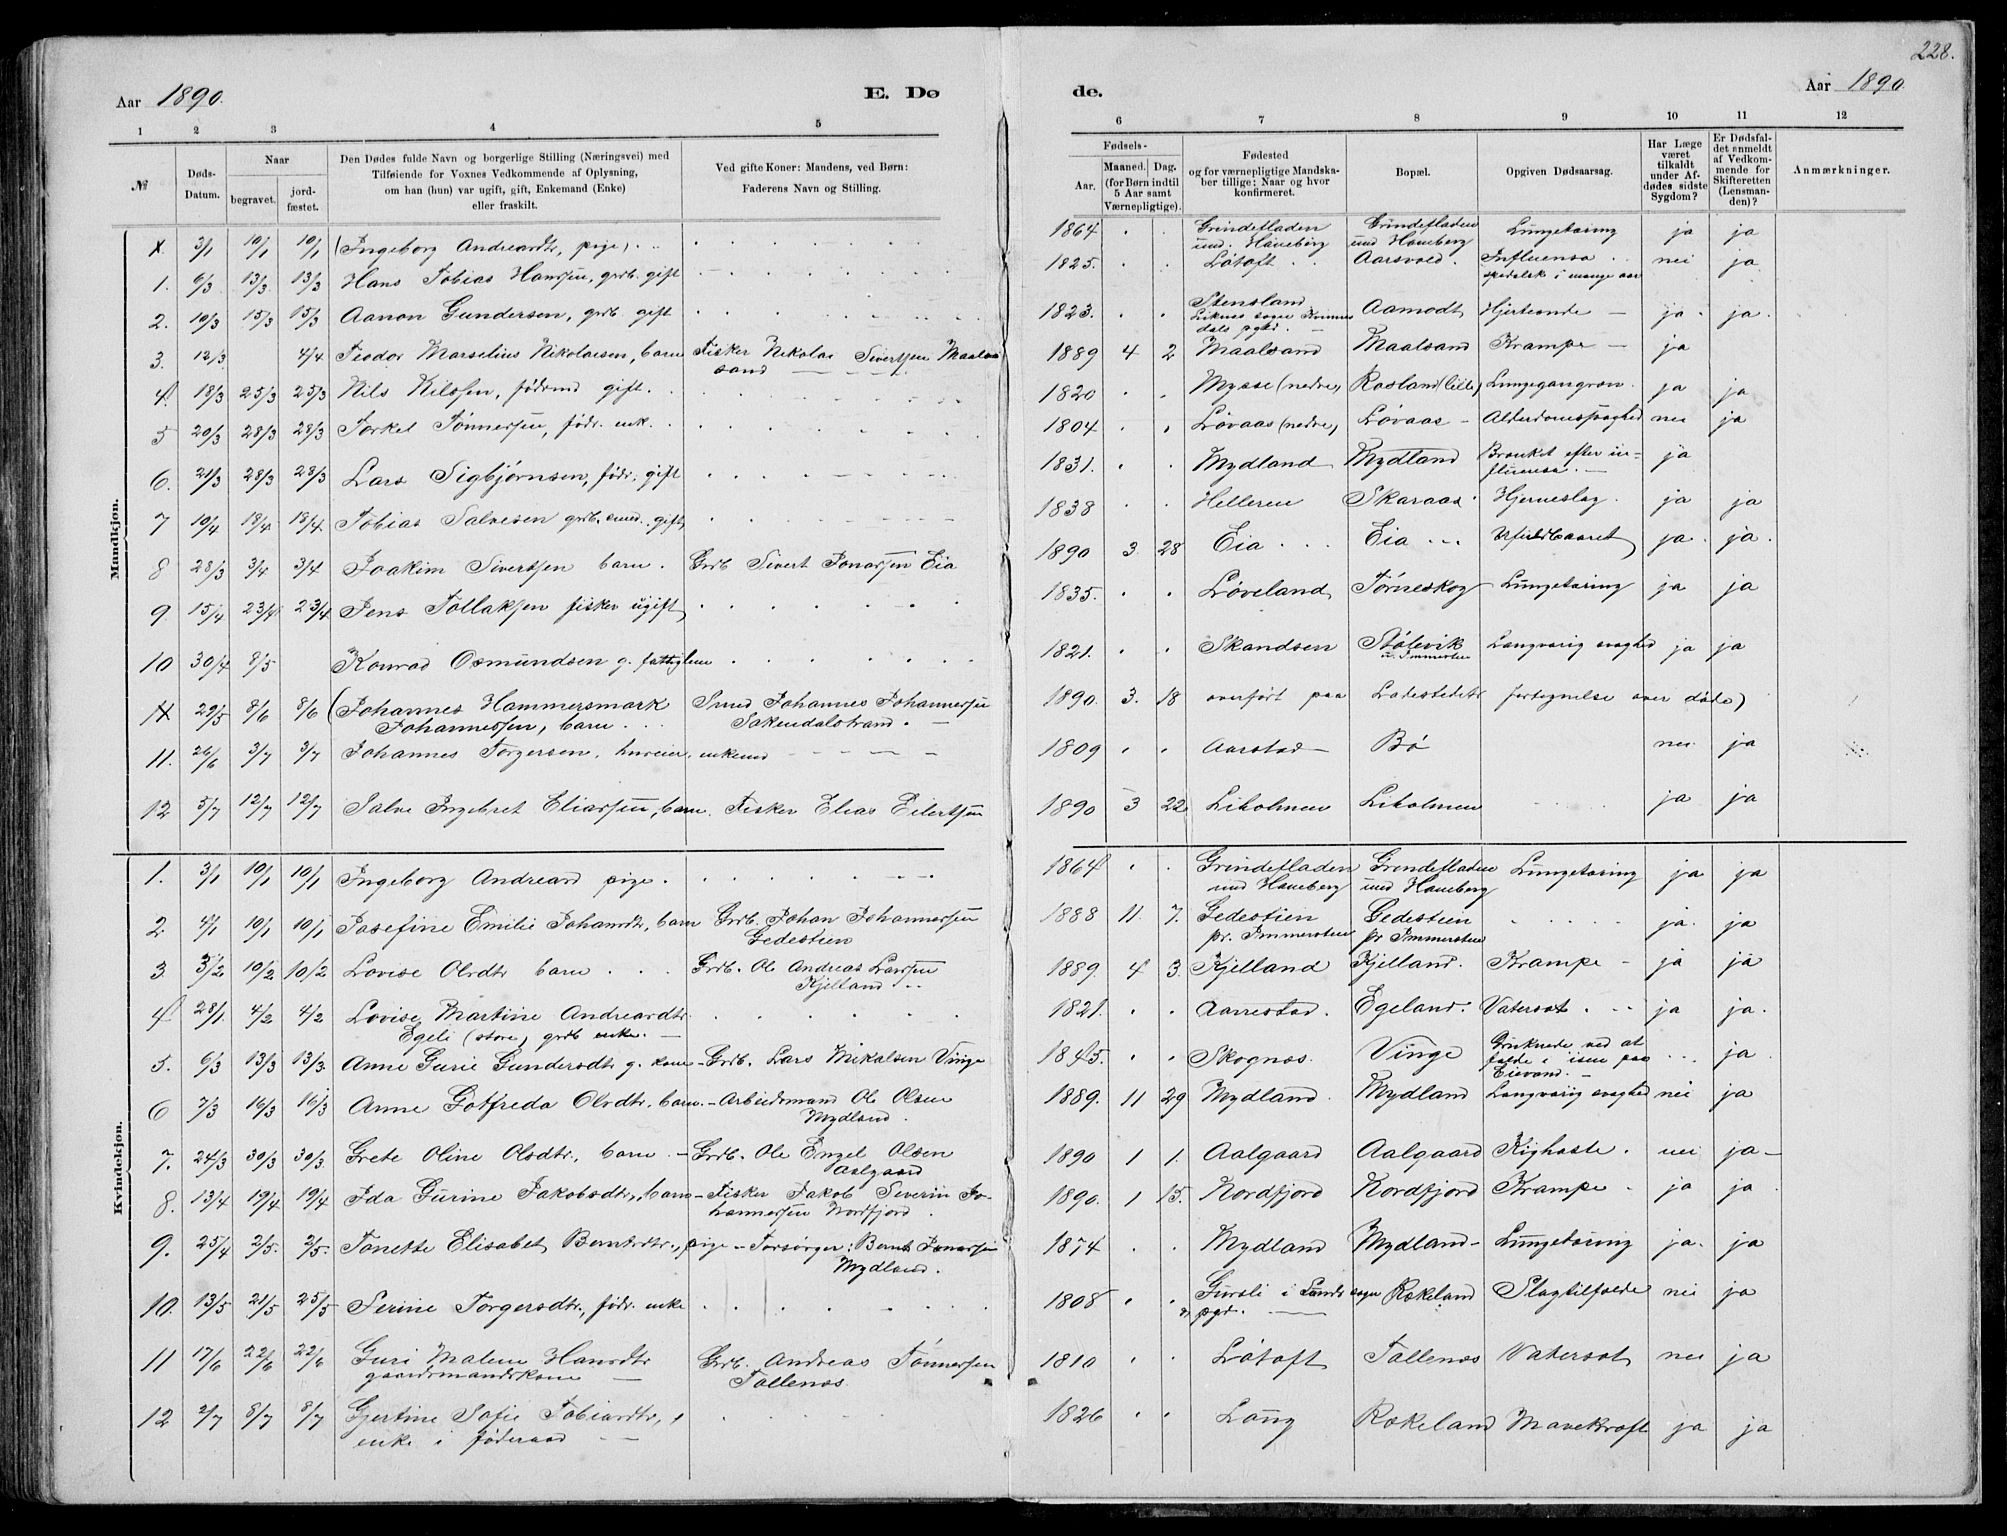 228.
Aar 1890.
E. Dø
de.
Aar 1890.
1 2 3 4 5 6 7 8 9 10 11 12
№
Døds-Datum.
Naar
begravet.
jordfæstet.
Den Dødes fulde Navn og borgerlige Stilling (Næringsvei) med
Tilføiende for Voxnes Vedkommende af Oplysning,
om han (hun) var ugift, gift, Enkemand (Enke)
eller fraskilt.
Ved gifte Koner: Mandens, ved Børn:
Faderens Navn og Stilling.
Fødsels-
Aar.
Maaned. Dag.
(for Børn indtil
5 Aar samt
Værnepligtige).
Fødested
og for værnepligtige Mandskaber tillige: Naar og hvor
konfirmeret.
Bopæl.
Opgiven Dødsaarsag.
Har Læge
været
tilkaldt
under Afdødes sidste
Sygdom?
Er Dødsfaldet anmeldt
af Vedkommende for
Skifteretten
(Lensmanden)?
Anmærkninger.
Mandkjøn.
X 3/1 10/1 10/1 (Ingeborg Andreasdtr, pige) 1864 Grindefladen und. Haneberg Grindefladen und Haneberg Lungetæring ja ja
1. 6/3 13/3 13/3 Hans Tobias Hansen, grdb. gift 1825. Løtoft Aarsvold. Influensa spedalsk i mange aar nei ja
2. 10/3 15/3 15/3 Aanon Gundersen, grdb gift 1823. Stensland Liknes sogn Aamodt Hjerteonde ja ja.
3. 12/3 4/4 Teodor Marselius Nikolaisen, barn Fisker Nikolai Sivertsen Maalsand 1889 4 2 Maalsand Maalsand Krampe ja
4. 18/3 25/3 25/3 Nils Nilssen, fødsmd gift. 1820 Mysse (nedre) Rosland (lille) Lungegangræn. ja ja
5 20/3 28/3 28/3 Torkel Tønnessen, fødr. enk. 1804 Løvaas (nedre) Løvaas Alderdomssvaghed nei ja
6. 21/3 28/3 28/3 Lars Sigbjørnsen, fødr. gift 1831. Mydland Mydland Bronket efter influensa. ja
7 10/4 18/4 18/4 Tobias Salvesen grdb. gift 1838 Helleren Skaraas Hjerneslag. ja ja
8 28/3 3/4 3/4 Joakim Sivertsen barn. Grdb Sivert Jonassen Eia 1890 3. 28 Eia Eia Ufuldbaaret ja ja.
9 15/4 23/4 23/4 Jens Tollaksen fisker ugift 1835. Løveland Tørneskog Lungetæring ja ja
10 30/4 8/5 Konrad Osmundsen g. fattiglem 1821. Skandsen Stølevik u. Immersten Langvarig svaghed ja ja
X 29/5 8/6 8/6 (Johannes Hammersmark Johannessen, barn Smed Johannes Johannessen Sokendalstrand. 1890. 3. 18 overført paa Ladestedets fortegnelse over døde)
11. 26/6 3/7 3/7 Johannes Torgersen, huseier, enkemd 1809 Aarstad Bø nei ja
12 5/7 12/7 12/7 Salve Ingebret Eliassen, barn. Fisker Elias Eilertsen 1890 3 22 Liholmen Liholmen ja ja
Kvindekjøn.
1. 3/1 10/1 10/1 Ingeborg Andreasd pige. 1864 Grindefladen und Haneberg Grindefladen und Haneberg Lungetæring ja ja
2. 4/1 10/1 10/1 Josefine Emilie Johansdtr, barn Grdb. Johan Johannessen Gedestien 1888 11. 7. Gedestien pr. Immersten Gedestien pr Immersten ja. ja
3. 3/2 10/2 10/2 Lovise Olsdtr barn Grdb. Ole Andreas Larssen Kjelland 1889. 4 3. Kjelland Kjelland. Krampe ja ja
4 28/1. 4/2 4/2 Lovise Martine Andreasdtr Egeli (store) grdb enke. 1821. Aarrestad. Egeland. Vatersot. ja ja.
5. 6/3 13/3 13/3. Anne Gurie Gundersdtr g. kone Grdb. Lars Mikalsen Vinge 1845. Skognæs. Vinge Druknede ved at falde i isen paa Eievand. ja.
6 7/3 16/3 16/3 Anne Gotfreda Olsdtr, barn. Arbeidsmand Ole Olsen Mydland. 1889. 11 29 Mydland. Mydland Langvarig svaghed nei ja
7. 24/3 30/3 30/3 Grete Oline Olsdtr, barn Grdb. Ole Engel Olsen Aalgaard 1890 1 1. Aalgaard Aalgaard Kighoste. nei ja
8. 13/4 19/4 19/4 Ida Gurine Jakobsdtr, barn Fisker Jakob Severin Johannessen Nordfjord. 1890. 1 15. Nordfjord Nordfjord Krampe ja ja
9. 25/4 2/5. 2/5. Tonette Elisabet Berntsdtr, pige Forsørger: Bernt Jonassen Mydland. 1874 Mydland Mydland Lungetæring ja. ja
10. 13/5 21/5 25/5 Serine Torgersdtr, fødr. enke 1808 Gursli i Lunds sogn pgd. Rækeland Slagtilfælde nei ja
11 17/6 22/6 22/6 Guri Malene Hansdtr gaardmandskone Grdb. Andreas Tønnessen Tollenæs. 1810 Løtoft Tollenæs Vatersot nei ja
12 2/7 8/7 8/7 Gjertine Sofie Tobiasdtr, enke i føderaad 1826 Lang Rækeland Mavekræft ja ja